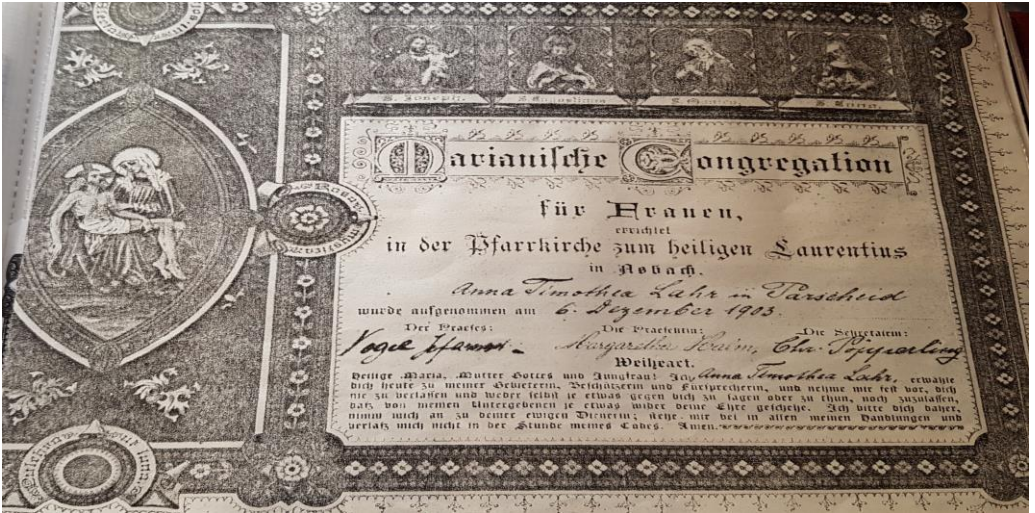 S. Joseph.
S. Augustinus
S. Monica.
S. Anna.
Marianische Congregation
für Frauen,
errichtet
in der Pfarrkirche zum heiligen Laurentius
in Asbach.
Anna Timothea Lahr in Parscheid
wurde aufgenommen am 6. Dezember 1903.
Der Praeses: Die Praefectin: Die Secretairin:
Vogel Pfarrer. Margaretha Chr.
Weiheact.
Heilige Maria, Mutter Gottes und Jungfrau! Ich, Anna Timothea Lahr, erwähle
dich heute zu meiner Gebieterin, Beschützerin und Fürsprecherin, und nehme mir fest vor, dich
nie zu verlassen und weder selbst je etwas gegen dich zu sagen oder zu thun, noch zuzulassen,
daß von meinen Untergebenen je etwas wider deine Ehre geschehe. Ich bitte dich daher,
nimm mich an zu deiner ewigen Dienerin; steh mir bei in allen meinen Handlungen und
verlaß mich nicht in der Stunde meines Todes. Amen.